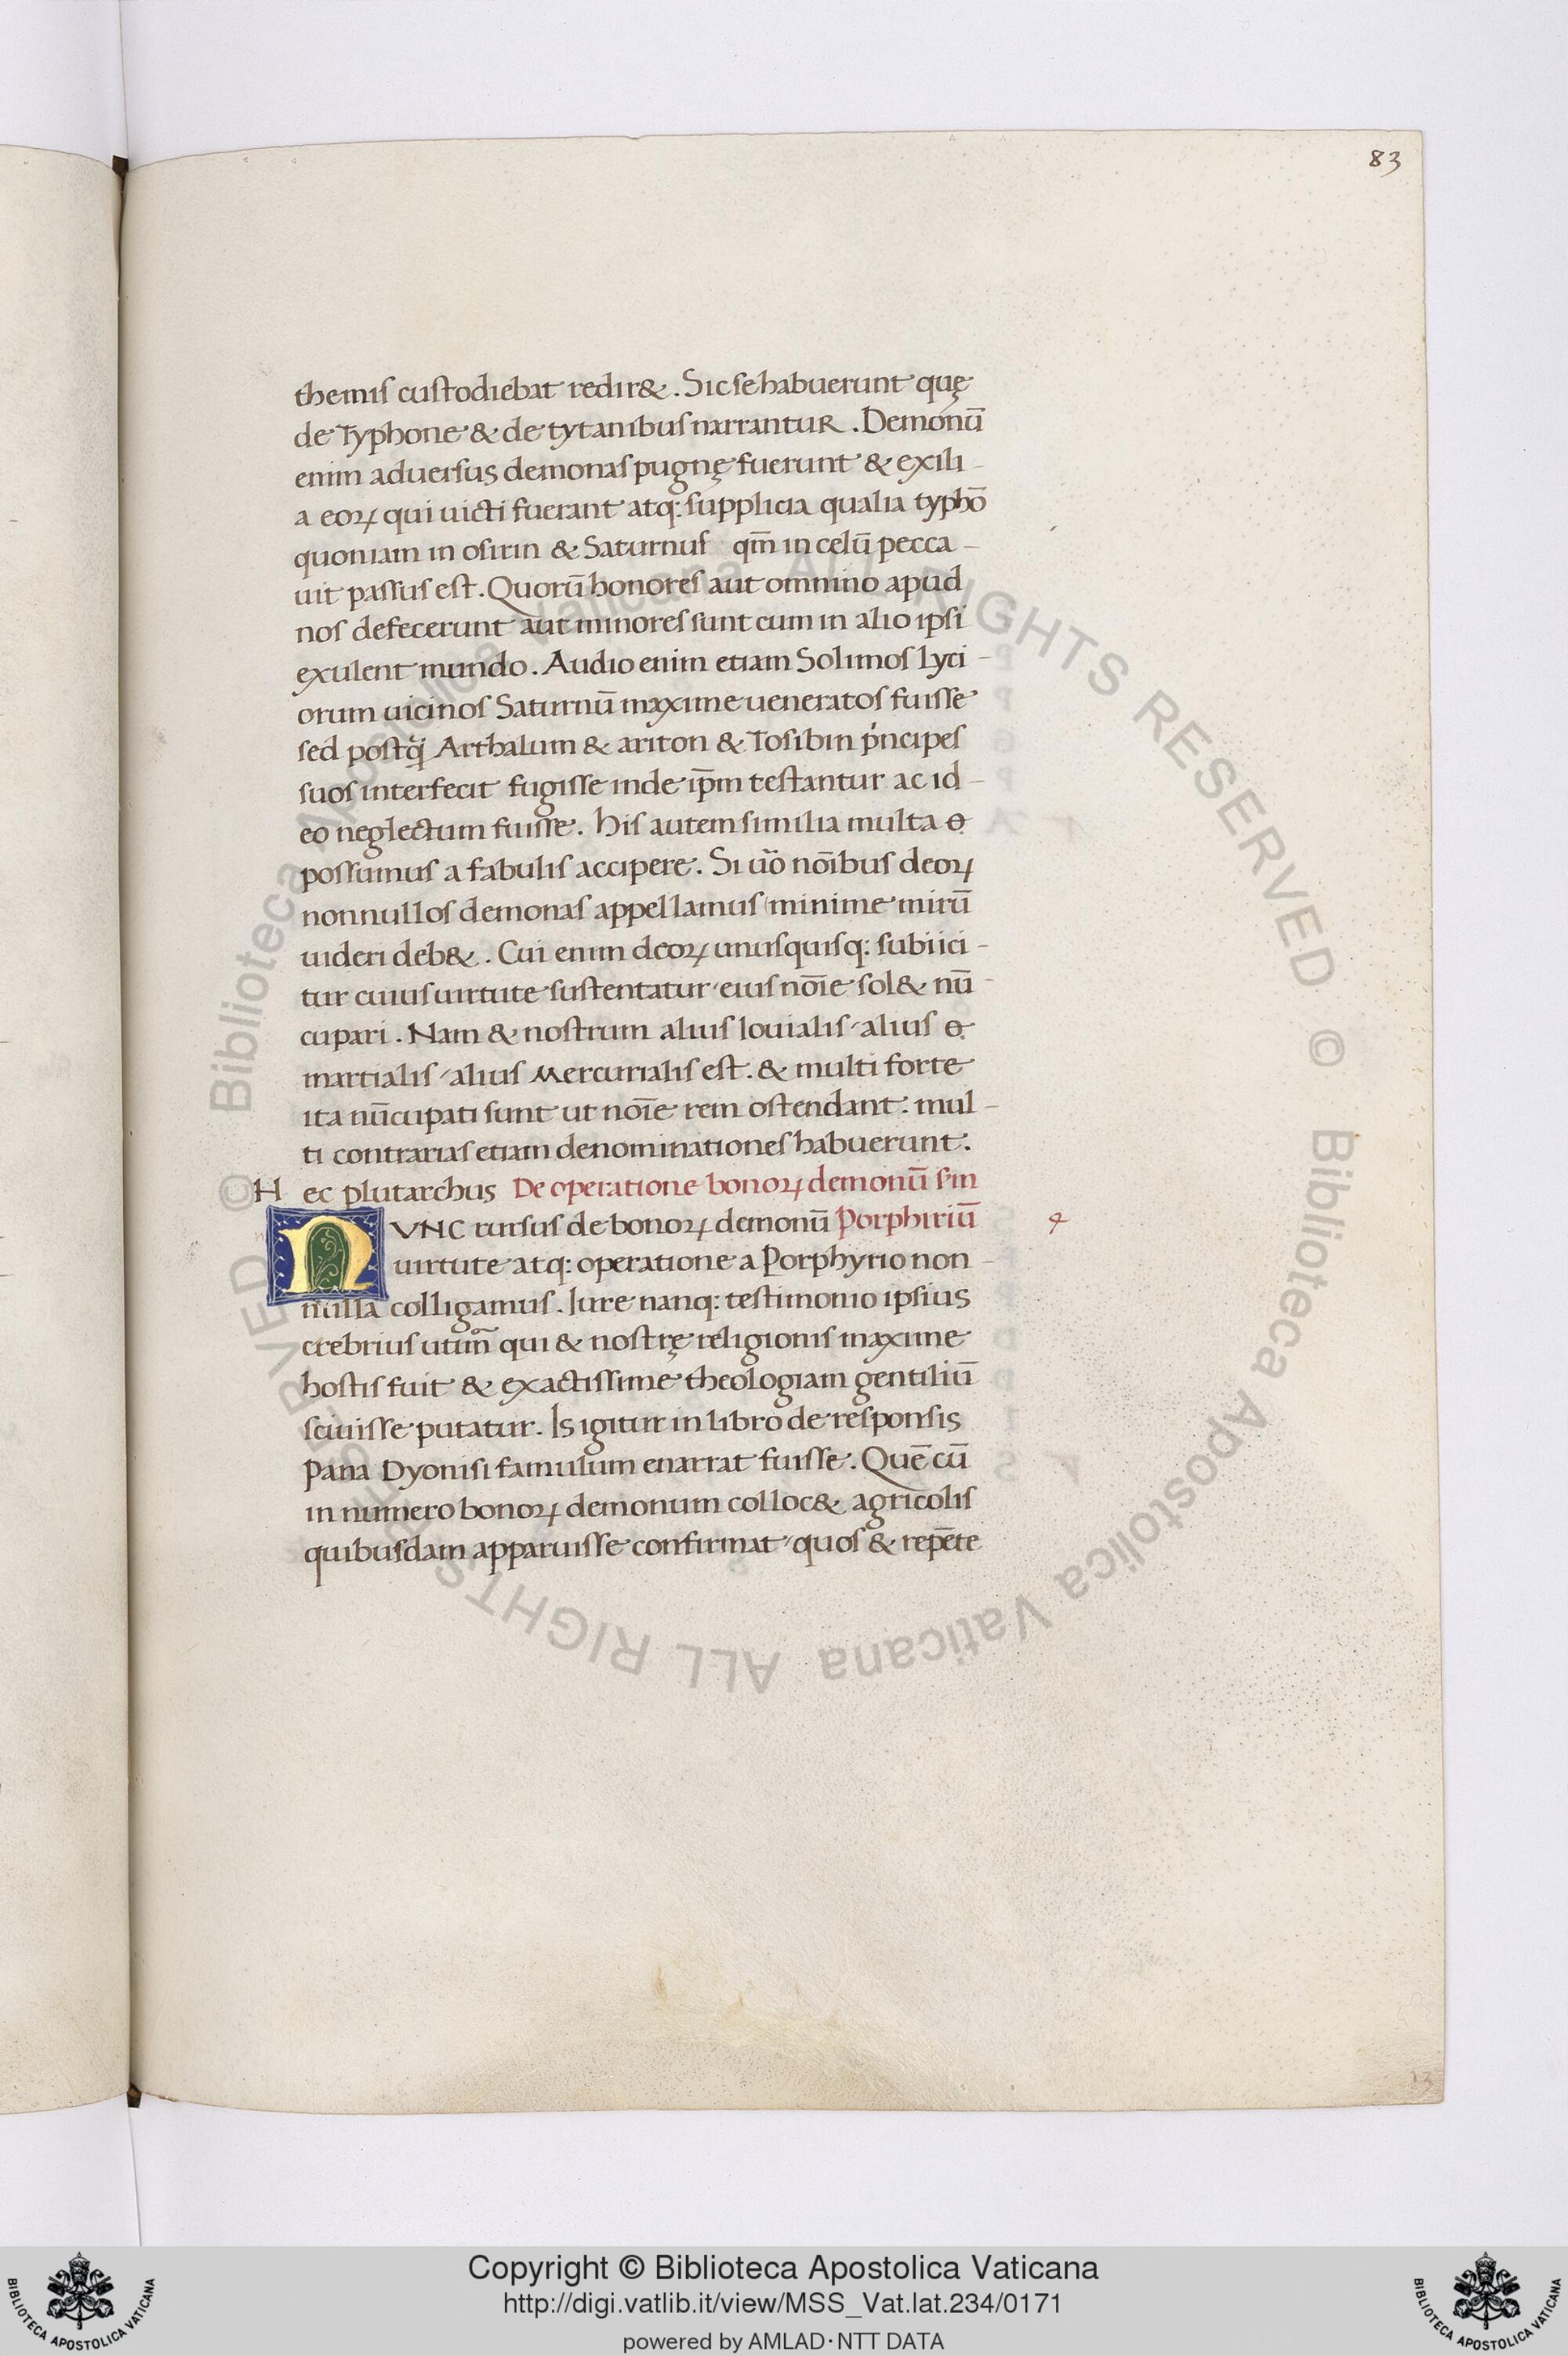 83
themis custodiebat redir&. Sic se habuerunt quę
de Typhone & de tytanibus narrantur. Demonū
enim aduersus demonas pugnę fuerunt & exili-
a eoꝝ qui uicti fuerant atq: supplicia qualia typhō
quoniam in osirin & Saturnus qm̄ in celū pecca-
uit passus est. Quorū honores aut omnino apud
nos defecerunt aut minores sunt cum in alio ipsi
exulent mundo. Audio enim etiam Solimos Lyci-
orum uicinos Saturnū maxime ueneratos fuisse
sed postq̃ Arthalum & ariton & Tosibin pͥncipes
suos interfecit fugisse inde ip̄m testantur ac id-
eo neglectum fuisse. his autem similia multa
possumus a fabulis accipere. Si ūo noībus deoꝝ
nonnullos demonas appellamus minime mirū
uideri deb&. Cui enim deoꝝ unusquisq: subiici-
tur cuius uirtute sustentatur eius noīe sol& nū-
cupari. Nam & nostrum alius Iouialis alius
martialis alius Mercurialis est. & multi forte
ita nūcupati sunt ut noīe rem ostendant: mul-
ti contrarias etiam denominationes habuerunt.
Hec plutarchus De operatione bonoꝝ demonū sm
NVNC rursus de bonoꝝ demonū Porphiriū
uirtute atq: operatione a Porphyrio non-
nulla colligamus. Iure nanq: testimonio ipsius
crebrius utim̃ qui & nostrę religionis maxime
hostis fuit & exactissime theologiam gentiliū
sciuisse putatur. Is igitur in libro de responsis
Pana Dyonisi famulum enarrat fuisse. Quē cū
in numero bonoꝝ demonum colloc& agricolis
quibusdam apparuisse confirmat quos & repēte
© Biblioteca Apostolica Vaticana ALL RIGHTS RESERVED © Biblioteca Apostolica Vaticana ALL RIGHTS RESERVED
Copyright © Biblioteca Apostolica Vaticana
http://digi.vatlib.it/view/MSS_Vat.lat.234/0171
powered by AMLAD·NTT DATA
BIBLIOTECA APOSTOLICA VATICANA
BIBLIOTECA APOSTOLICA VATICANA